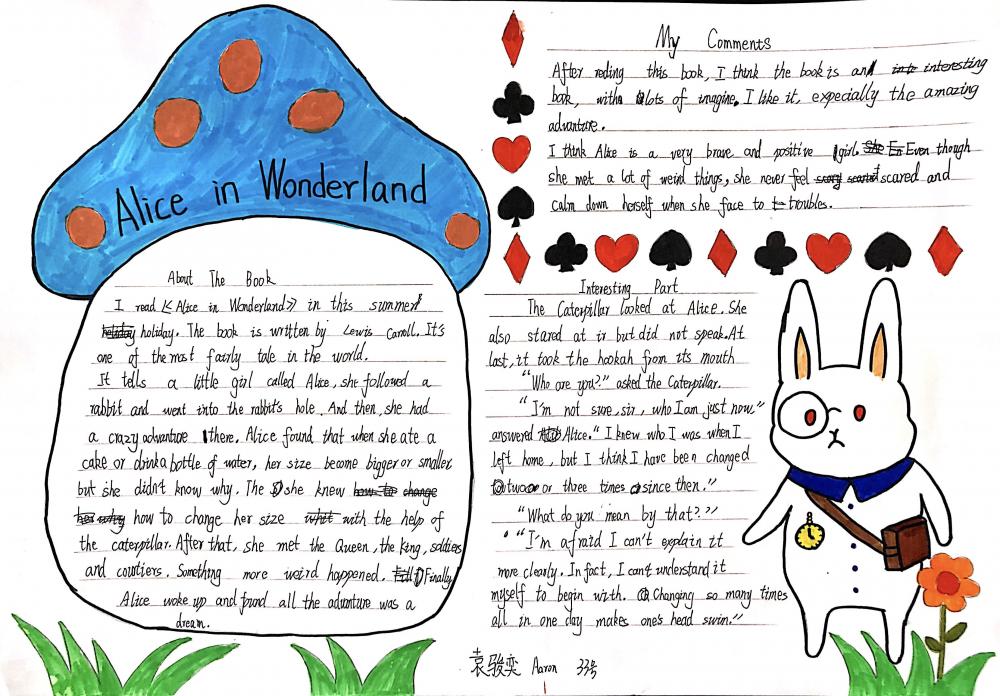 Alice in Wonderland
About The Book
I read 《Alice in Wonderland》 in this summer
holiday. The book is written by Lewis Carroll. It's
one of the most fairly tale in the world.
It tells a little girl called Alice, she followed a
rabbit and went into the rabbit's hole. And then, she had
a crazy advanture there. Alice found that when she ate a
cake or drink a bottle of water, her size become bigger or smaller
but she didn't know why. The she knew how to change
her why how to change her size with the help of
the caterpillar. After that, she met the Queen, the King, soldiers
and courtiers. Something more weird happened. Finally
Alice woke up and found all the advanture was a
dream.
My Comments
After reding this book, I think the book is an interesting
book, with lots of imagine. I like it, expecially the amazing
advanture.
I think Alice is a very brave and positive girl. Even though
she met a lot of weird things, she never feel scared and
calm down herself when she face to troubles.
Interesting Part
The Caterpillar looked at Alice. She
also stared at it but did not speak. At
last, it took the hookah from its mouth
"Who are you?" asked the Caterpillar.
"I'm not sure, sir, who I am just now."
answered Alice. "I knew who I was when I
left home, but I think I have been changed
two or three times since then."
"What do you mean by that?"
"I'm afraid I can't explain it
more clearly. In fact, I can't understand it
myself to begin with. Changing so many times
all in one day makes one's head swim."
袁骏奕 Aaron 33号